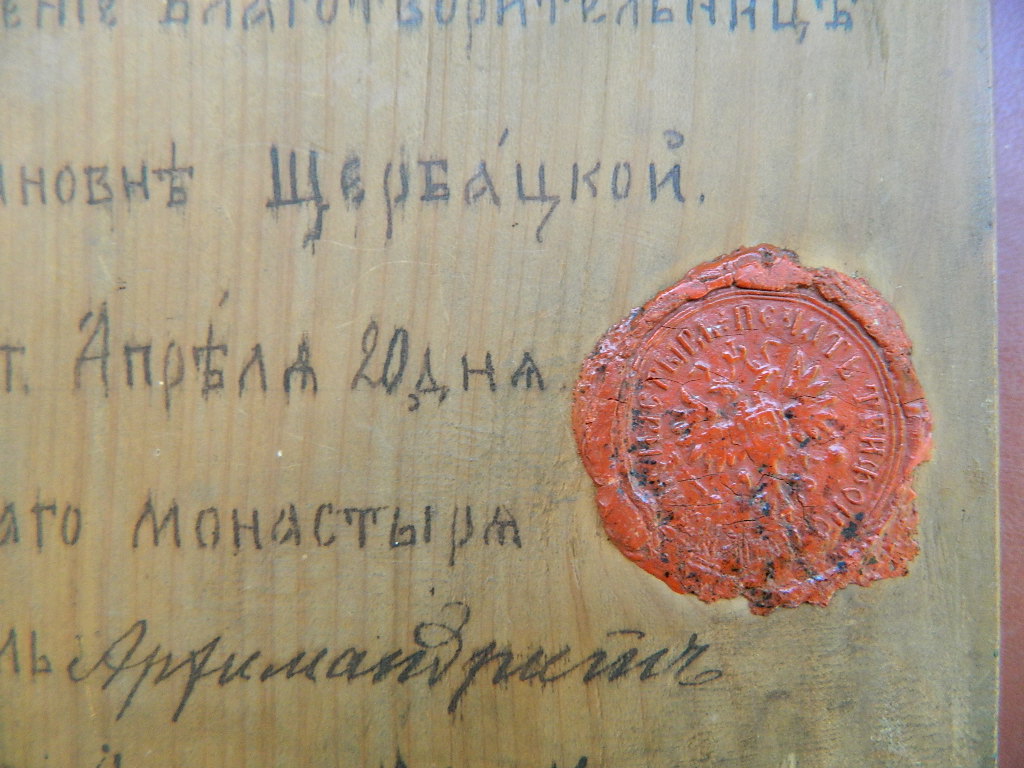 ение благотворительницѣ
новнѣ Щерба́цкой.
т. А҆прѣ́лѧ 20, днѧ
аго монастырѧ
ль Архимандритъ
ПЕЧАТЬ